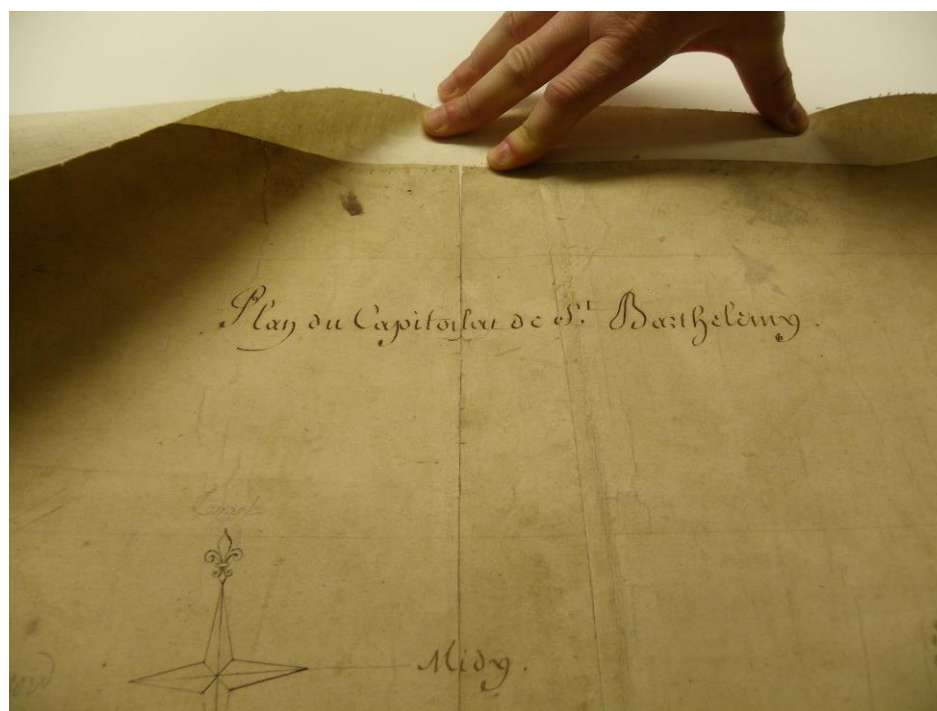 Plan du Capitoulat de S.t Barthelemy.
Levant
Midy.